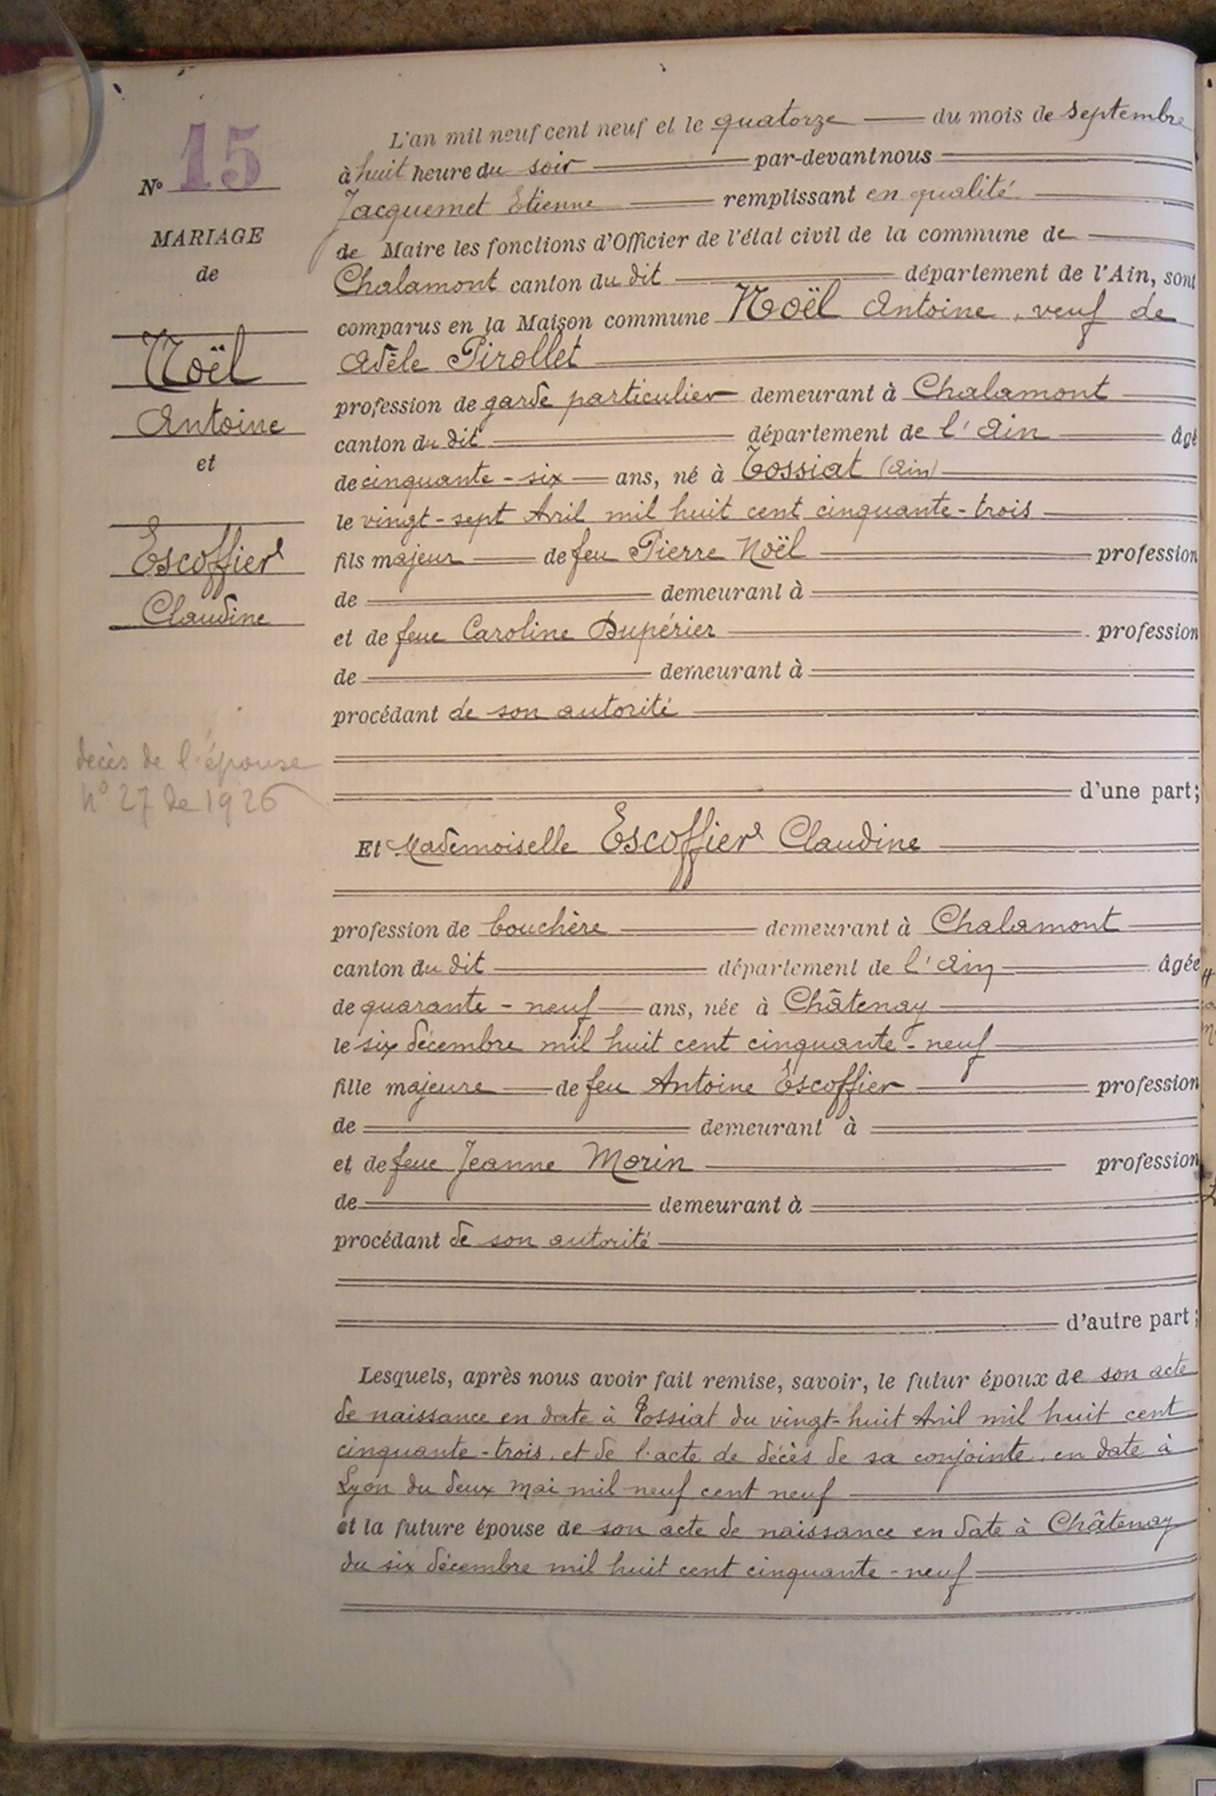 N° 15
MARIAGE
de
Noël
Antoine
et
Escoffier
Claudine
décès de l'épouse
N° 27 de 1926
L'an mil neuf cent neuf et le quatorze du mois de septembre
à huit heure du soir par-devant nous
Jacquemet Etienne remplissant en qualité
de Maire les fonctions d'Officier de l'état civil de la commune de
Chalamont canton du dit département de l'Ain, sont
comparus en la Maison commune Noël Antoine, veuf de
Adèle Pirollet
profession de garde particulier demeurant à Chalamont
canton du dit département de l'Ain âgé
de cinquante-six ans, né à Tossiat (Ain)
le vingt-sept Avril mil huit cent cinquante-trois
fils majeur de feu Pierre Noël profession
de demeurant à
et de feue Caroline Dupérier profession
de demeurant à
procédant de son autorité
d'une part;
Et Mademoiselle Escoffier Claudine
profession de bouchère demeurant à Chalamont
canton du dit département de l'Ain âgée
de quarante-neuf ans, née à Châtenay
le six décembre mil huit cent cinquante-neuf
fille majeure de feu Antoine Escoffier profession
de demeurant à
et de feue Jeanne Morin profession
de demeurant à
procédant de son autorité
d'autre part;
Lesquels, après nous avoir fait remise, savoir, le futur époux de son acte
de naissance en date à Tossiat du vingt-huit Avril mil huit cent
cinquante-trois, et de l'acte de décès de sa conjointe, en date à
Lyon du deux Mai mil neuf cent neuf
et la future épouse de son acte de naissance en date à Châtenay
du six décembre mil huit cent cinquante-neuf